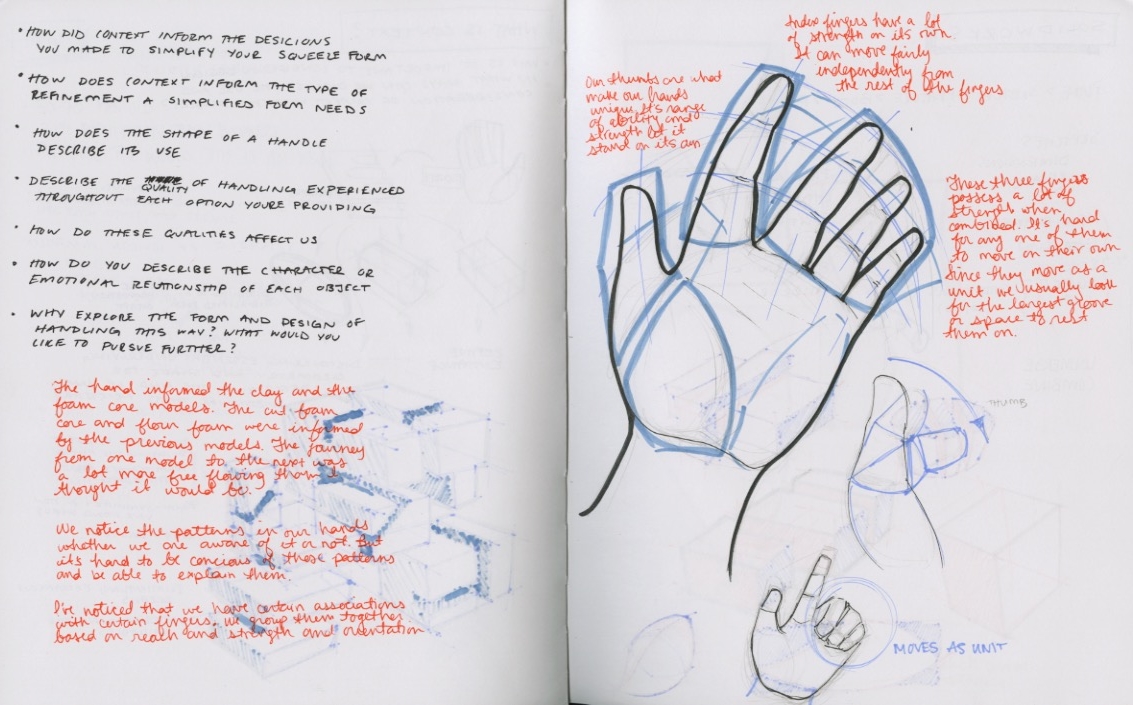 • HOW DID CONTEXT INFORM THE DESICIONS
YOU MADE TO SIMPLIFY YOUR SQUEEZE FORM
• HOW DOES CONTEXT INFORM THE TYPE OF
REFINEMENT A SIMPLIFIED FORM NEEDS
• HOW DOES THE SHAPE OF A HANDLE
DESCRIBE ITS USE
• DESCRIBE THE QUALITY OF HANDLING EXPERIENCED
THROUGHOUT EACH OPTION YOURE PROVIDING
• HOW DO THESE QUALITIES AFFECT US
• HOW DO YOU DESCRIBE THE CHARACTER OR
EMOTIONAL RELATIONSHIP OF EACH OBJECT
• WHY EXPLORE THE FORM AND DESIGN OF
HANDLING THIS WAY? WHAT WOULD YOU
LIKE TO PURSUE FURTHER?
The hand informed the clay and the
foam core models. The cut foam
core and flour foam were informed
by the previous models. The journey
from one model to the next was
a lot more free flowing than I
thought it would be.
We notice the patterns in our hands
whether we are aware of it or not. But
it's hard to be concious of those patterns
and be able to explain them.
I've noticed that we have certain associations
with certain fingers. We group them together
based on reach and strength and orientation
Index fingers have a lot
of strength on its own.
It can move fairly
independently from
the rest of the fingers
Our thumbs are what
make our hands
unique. It's range
of ability and
strength let it
stand on its own
These three fingers
possess a lot of
strength when
combined. It's hard
for any one of them
to move on their own
Since they move as a
unit we usually look
for the largest groove
or space to rest
them on.
THUMB
MOVES AS UNIT